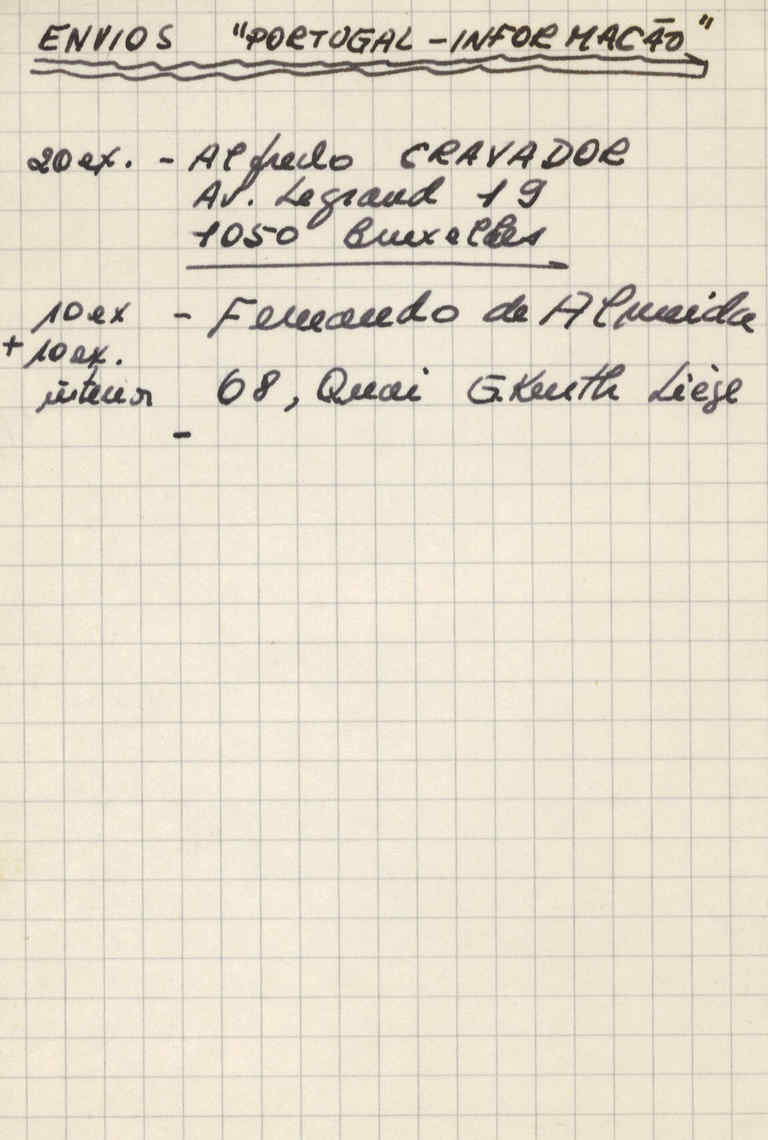 ENVIOS "PORTUGAL-INFORMAÇÃO"
20 ex. - Alfredo CRAVADOR
Av. Legrand 19
1050 Bruxelles
10 ex - Fernando de Almeida
+ 10 ex.
interior 68, Quai G. Kurth Liège
-